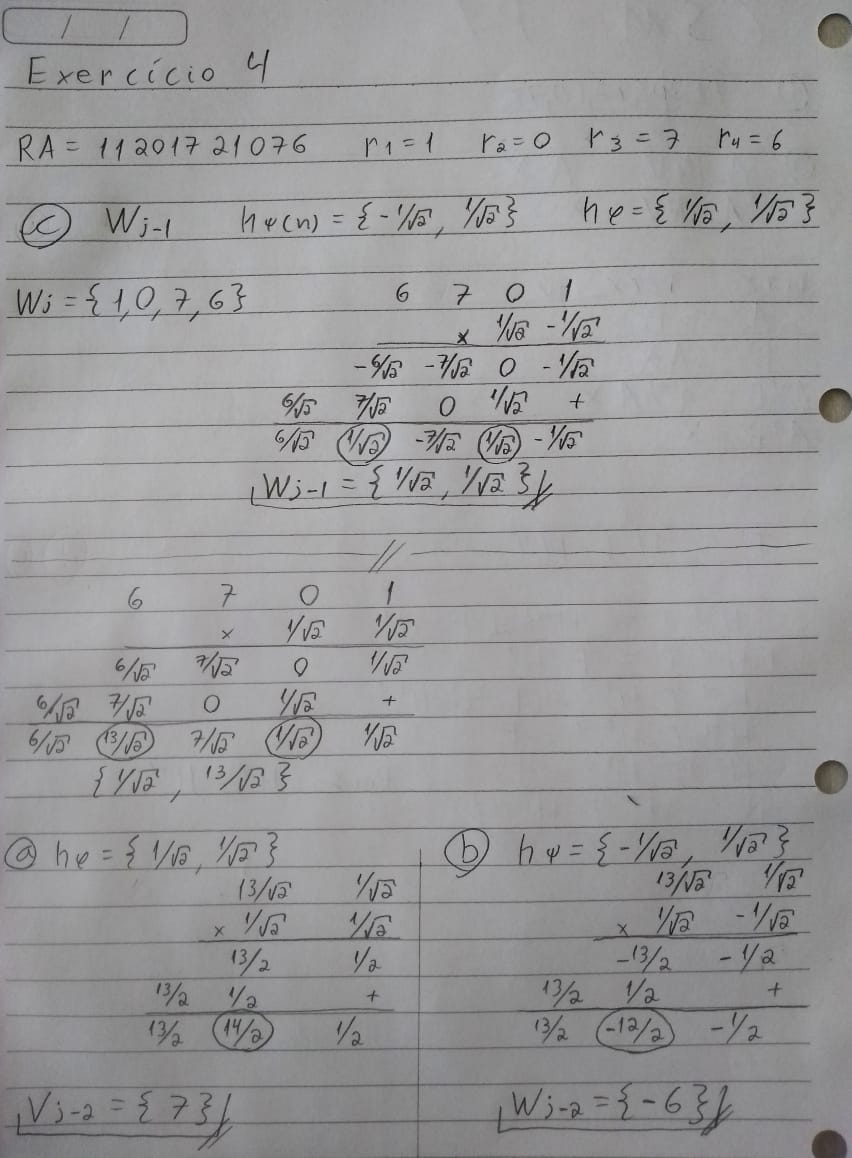 / /
Exercício 4
RA = 11201721076 r₁ = 1 r₂ = 0 r₃ = 7 r₄ = 6
(c) Wj-1 hψ(n) = {-1/√2, 1/√2} hφ = {1/√2, 1/√2}
Wj = {1,0,7,6} 6 7 0 1
x 1/√2 -1/√2
-6/√2 -7/√2 0 -1/√2
6/√2 7/√2 0 1/√2 +
6/√2 (1/√2) -7/√2 (1/√2) -1/√2
Wj-1 = {1/√2, 1/√2}//
//
6 7 0 1
x 1/√2 1/√2
6/√2 7/√2 0 1/√2
6/√2 7/√2 0 1/√2 +
6/√2 (13/√2) 7/√2 (1/√2) 1/√2
{1/√2, 13/√2}
(a) hφ = {1/√2, 1/√2}
13/√2 1/√2
x 1/√2 1/√2
13/2 1/2
13/2 1/2 +
13/2 (14/2) 1/2
Vj-2 = {7}//
(b) hψ = {-1/√2, 1/√2}
13/√2 1/√2
x 1/√2 -1/√2
-13/2 -1/2
13/2 1/2 +
13/2 (-12/2) -1/2
Wj-2 = {-6}//